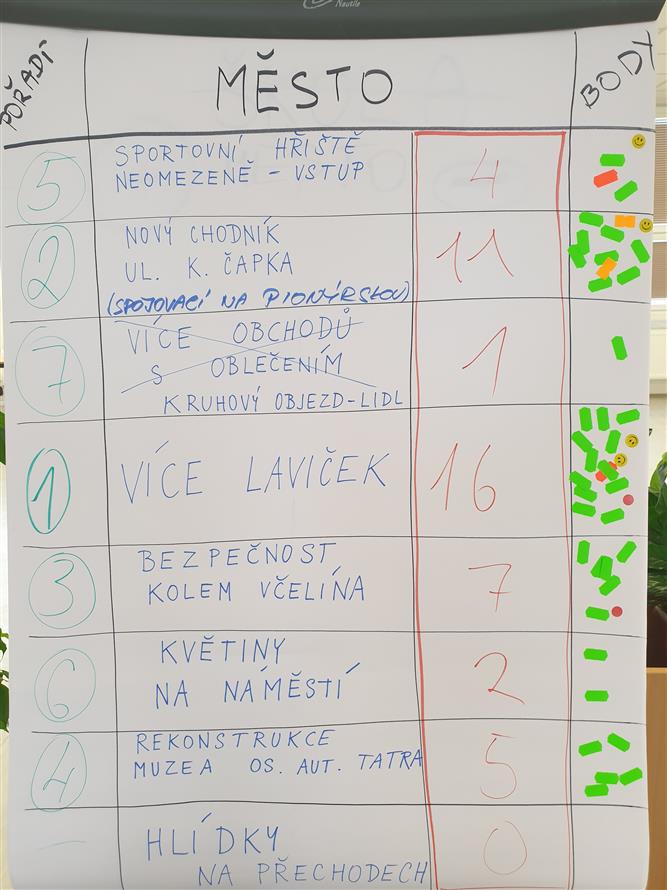 Nautile
POŘADÍ
MĚSTO
BODY
5
SPORTOVNÍ HŘIŠTĚ
NEOMEZENĚ - VSTUP
4
2
NOVÝ CHODNÍK
UL. K. ČAPKA
(SPOJOVACÍ NA PIONÝRSKOU)
11
7
VÍCE OBCHODŮ
S OBLEČENÍM
KRUHOVÝ OBJEZD-LIDL
1
1
VÍCE LAVIČEK
16
3
BEZPEČNOST
KOLEM VČELÍNA
7
6
KVĚTINY
NA NÁMĚSTÍ
2
4
REKONSTRUKCE
MUZEA OS. AUT. TATRA
5
HLÍDKY
NA PŘECHODECH
0